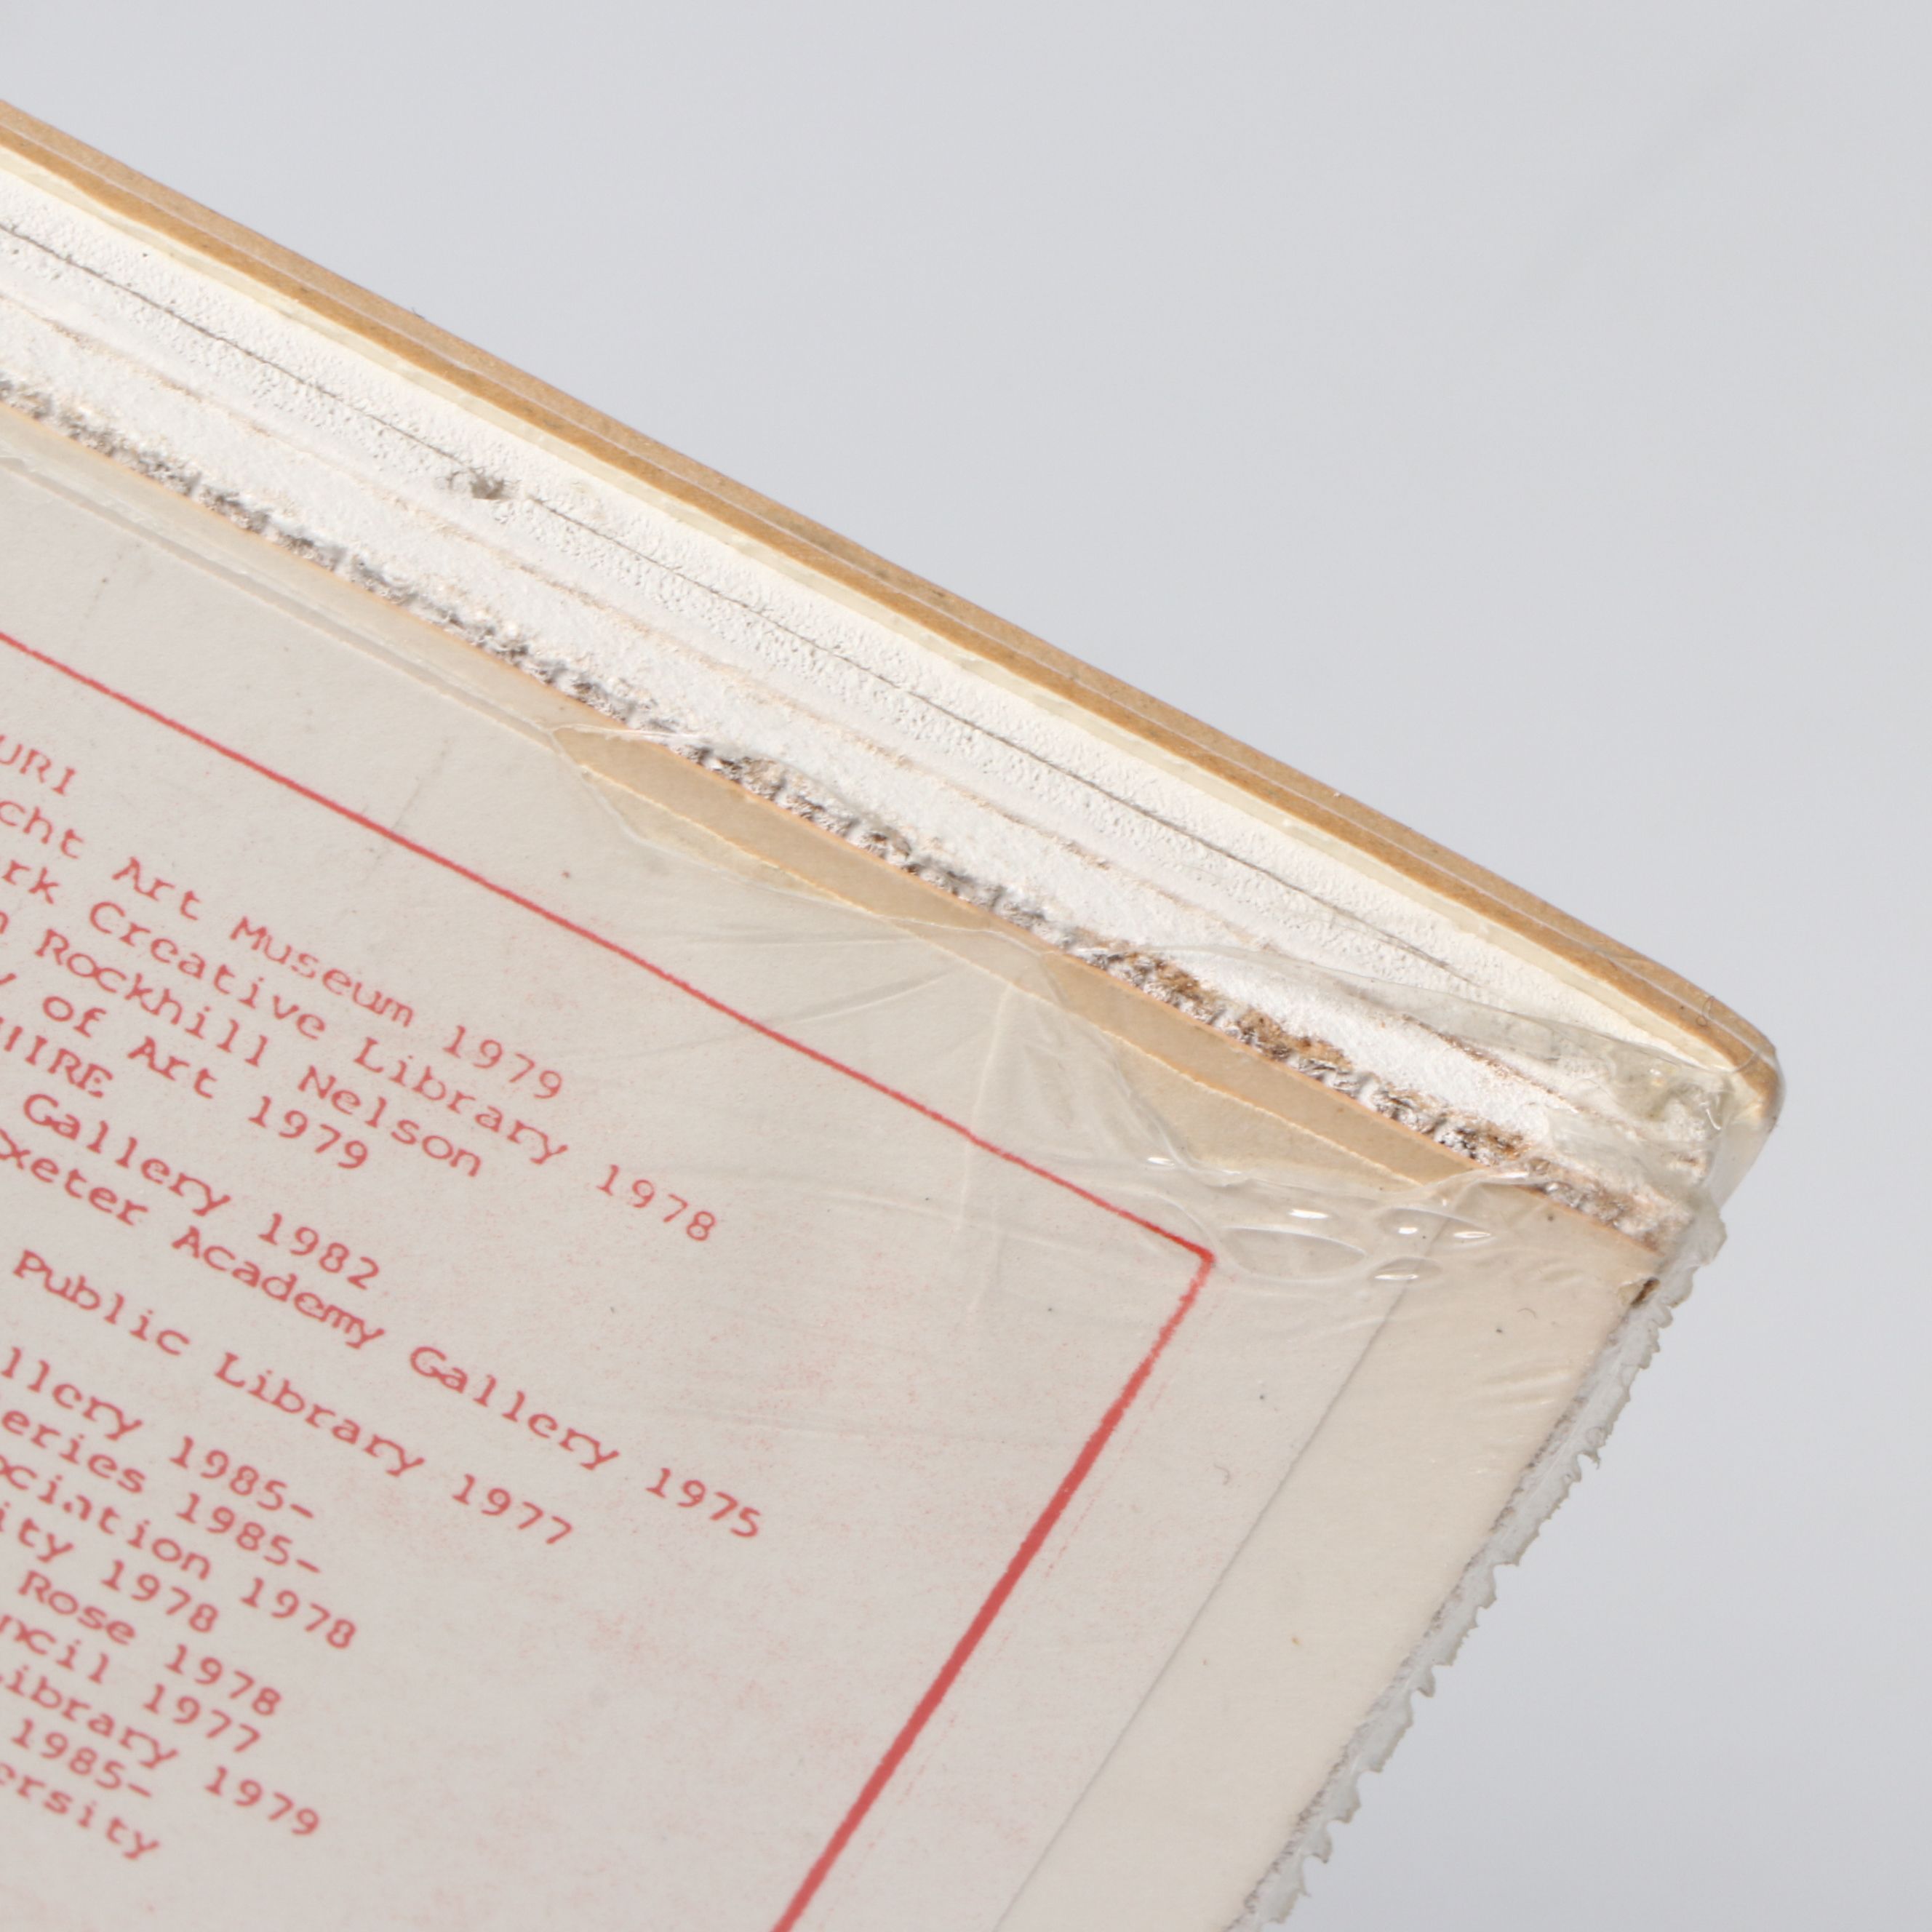 URI
cht Art Museum 1979
rk Creative Library 1978
n Rockhill Nelson
y of Art 1979
HIRE
Gallery 1982
xeter Academy Gallery 1975
Public Library 1977
llery 1985-
eries 1985-
ociation 1978
ity 1978
Rose 1978
ncil 1977
ibrary 1979
1985-
ersity